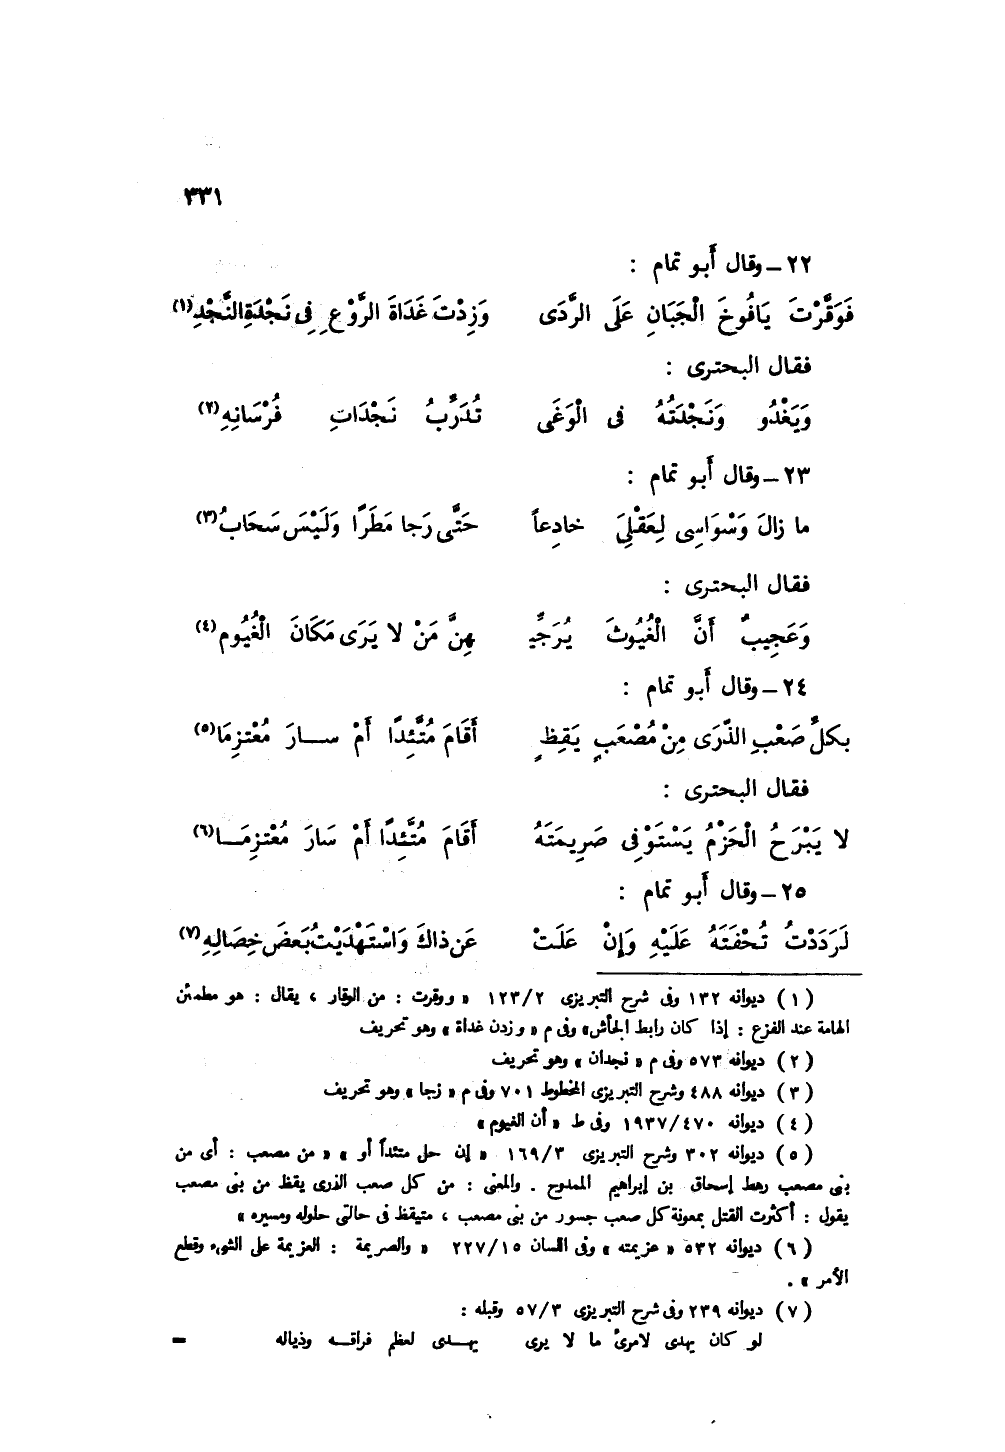 ٣٣١
٢٢ – وقال أبو تمام :
فَوَقَّرْتَ يَافُوخَ الْجَبَانِ عَلَى الرَّدَى وَزِدْتَ غَدَاةَ الرَّوْعِ فِى نَجْدَةِ النَّجْدِ(١)
فقال البحترى :
وَيَغْدُو وَنَجْدَتُهُ فى الْوَغَى تُدَرِّبُ نَجْدَاتِ فُرْسَانِهِ(٢)
٢٣ – وقال أبو تمام :
ما زالَ وَسْوَاسِى لِعَقْلِىَ خادِعاً حَتَّى رَجا مَطَرًا وَلَيْسَ سَحَابُ(٣)
فقال البحترى :
وَعَجِيبٌ أَنَّ الْغُيُوثَ يُرَجِّيـ ـهِنَّ مَنْ لا يَرَى مَكَانَ الْغُيُومِ(٤)
٢٤ – وقال أبو تمام :
بكلِّ صَعْبِ الذّرَى مِنْ مُصْعَبٍ يَقِظٍ أَقَامَ مُتَّئِدًا أَمْ سـارَ مُعْتزِمَا(٥)
فقال البحترى :
لا يَبْرَحُ الْحَزْمُ يَسْتَوْفِى صَرِيمَتَهُ أَقَامَ مُتَّئِدًا أَمْ سَارَ مُعْتزِمَـا(٦)
٢٥ – وقال أبو تمام :
لَرَدَدْتُ تُحْفَتَهُ عَلَيْهِ وَإِنْ عَلَتْ عَن ذاكَ وَاسْتَهْدَيْتُ بَعضَ خِصَالِهِ(٧)
(١) ديوانه ١٣٢ وفى شرح التبريزى ١٢٣/٢ « ووقرت : من الوقار ، يقال : هو مطمئن
الهامة عند الفزع : إذا كان رابط الجأش» وفى م « وزدن غداة » وهو تحريف
(٢) ديوانه ٥٧٣ وفى م « نجدان » وهو تحريف
(٣) ديوانه ٤٨٨ وشرح التبريزى المخطوط ٧٠١ وفى م « زجا » وهو تحريف
(٤) ديوانه ١٩٣٧/٤٧٠ وفى ط « أن الغيوم »
(٥) ديوانه ٣٠٢ وشرح التبريزى ١٦٩/٣ « إن حل متئداً أو » « من مصعب : أى من
بنى مصعب رهط إسحاق بن إبراهيم الممدوح . والمعنى : من كل صعب الذرى يقظ من بنى مصعب
يقول : أكثرت القتل بمعونة كل صعب جسور من بنى مصعب ، متيقظ فى حالتى حلوله ومسيره »
(٦) ديوانه ٥٣٢ « عزيمته » وفى اللسان ٢٢٧/١٥ « والصريمة : العزيمة على الشىء وقطع
الأمر » .
(٧) ديوانه ٢٣٩ وفى شرح التبريزى ٥٧/٣ وقبله :
لو كان يهدى لامرئ ما لا يرى يهـدى لعظم فراقـه وذياله =